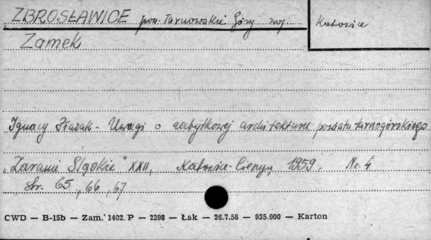 ZBROSŁAWICE pow. Tarnowskie Góry woj. Katowice
Zamek
Ignacy Płazak - Uwagi o zabytkowej architekturze powiatu tarnogórskiego
"Zaranie Śląskie" XXII, Katowice-Cieszyn 1959. Nr. 4
str. 65, 66, 67
CWD — B-15b — Zam. 1402. P — 2398 — Łak — 26.7.56 — 935.000 — Karton